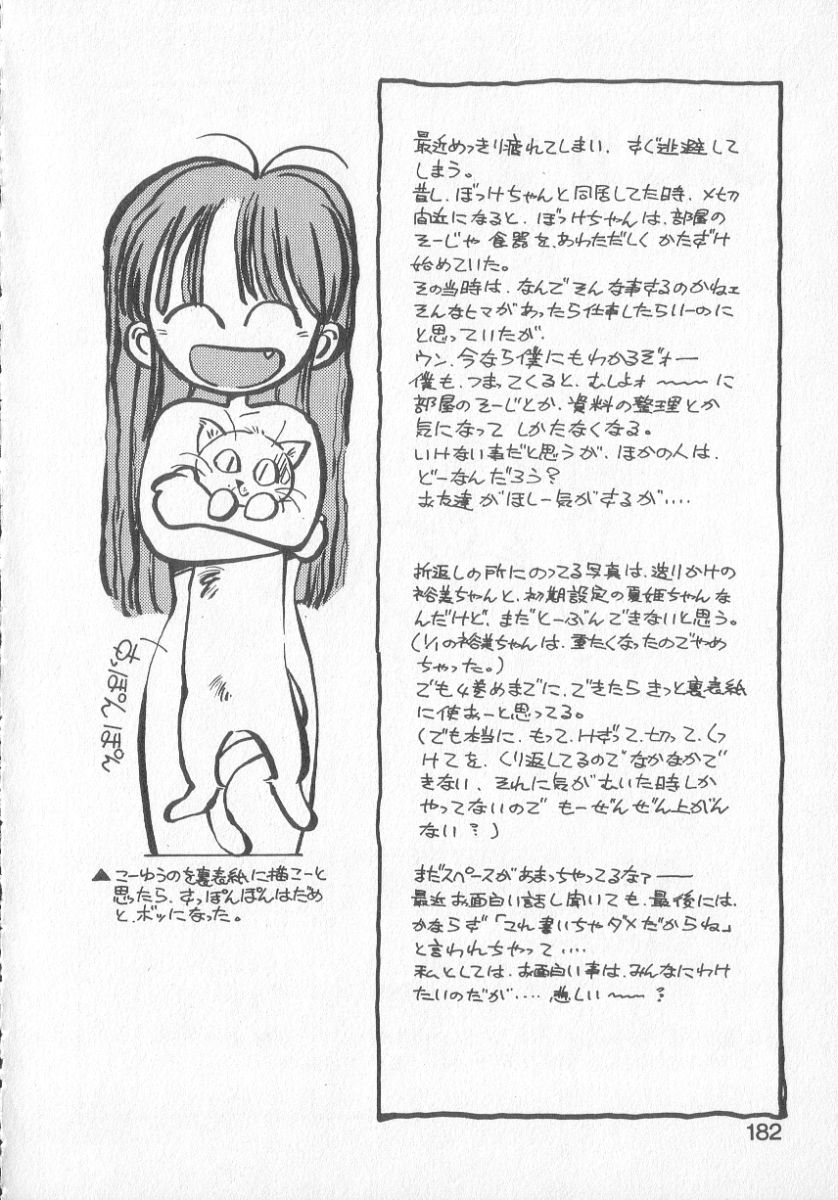 最近めっきり疲れてしまい、すぐ逃避して
しまう。
昔し、ぼっけちゃんと同居してた時、〆切
間近になると、ぼっけちゃんは、部屋の
そーじや食器を、あわただしくかたずけ
始めていた。
その当時は、なんでそんな事するのかねェ
そんなヒマがあったら仕事したらいーのに
と思っていたが、
ウン、今なら僕にもわかるぞォー
僕も、つまってくると、むしょォ〜〜に
部屋のそーじとか、資料の整理とか
気になってしかたなくなる。
いけない事だと思うが、ほかの人は、
どーなんだろう?
お友達がほしー気がするが‥‥
折返しの所にのってる写真は、造りかけの
裕美ちゃんと、初期設定の夏姫ちゃんな
んだけど、まだとーぶんできないと思う。
(1/1の裕美ちゃんは、重たくなったのでやめ
ちゃった。)
でも4巻めまでに、できたらきっと裏表紙
に使おーと思ってる。
(でも本当に、もって、けずって、切って、くっ
けてを、くり返してるのでなかなかで
きない、それに気がむいた時しか
やってないのでもーぜんぜん上がん
ない?)
まだスペースがあまっちゃってるなァー
最近お面白い話し聞いても、最後には、
かならず「これ書いちゃダメだからね」
と言われちゃって‥‥
私としては、お面白い事は、みんなにわけ
たいのだが‥‥悲しい〜〜?
すっぽんぽん
▲こーゆうのを裏表紙に描こーと
思ったら、すっぽんぽんはだめ
と、ボツになった。
182